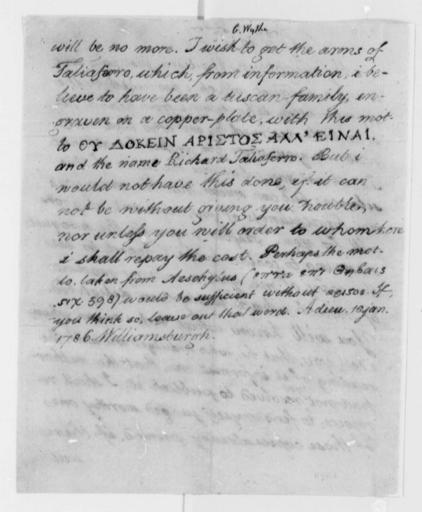 G. Wythe
will be no more. I wish to get the arms of
Taliaferro, which, from information, i be-
lieve to have been a tuscan family, en-
graven on a copper-plate, with this mot-
to ΟΥ ΔΟΚΕΙΝ ΑΡΙΣΤΟΣ ΑΛΛ' ΕΙΝΑΙ.
and the name Richard Taliaferro. But i
would not have this done, if it can
not be without giving you trouble,
nor unless you will order to whom here
i shall repay the cost. Perhaps the mot-
to, taken from Aeschylus (επτα επι Θηβαις
598) would be sufficient without If,
you think so, leave out that word. Adieu. 10 jan.
1786 Williamsburgh.